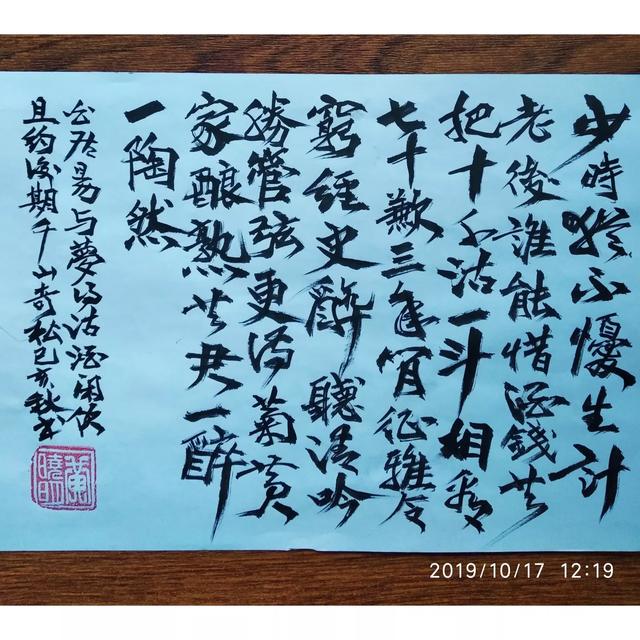 少時猶不憂生計
老後誰能惜酒錢共
把十千沽一斗相看
七十歉三年閒征雅令
窮經史醉聽清吟
勝管弦更待菊黄
家釀熟共君一醉
一陶然
白居易与夢得沽酒闲飲
且约後期千山奇松己亥秋书
黄曉明
2019/10/17 12:19